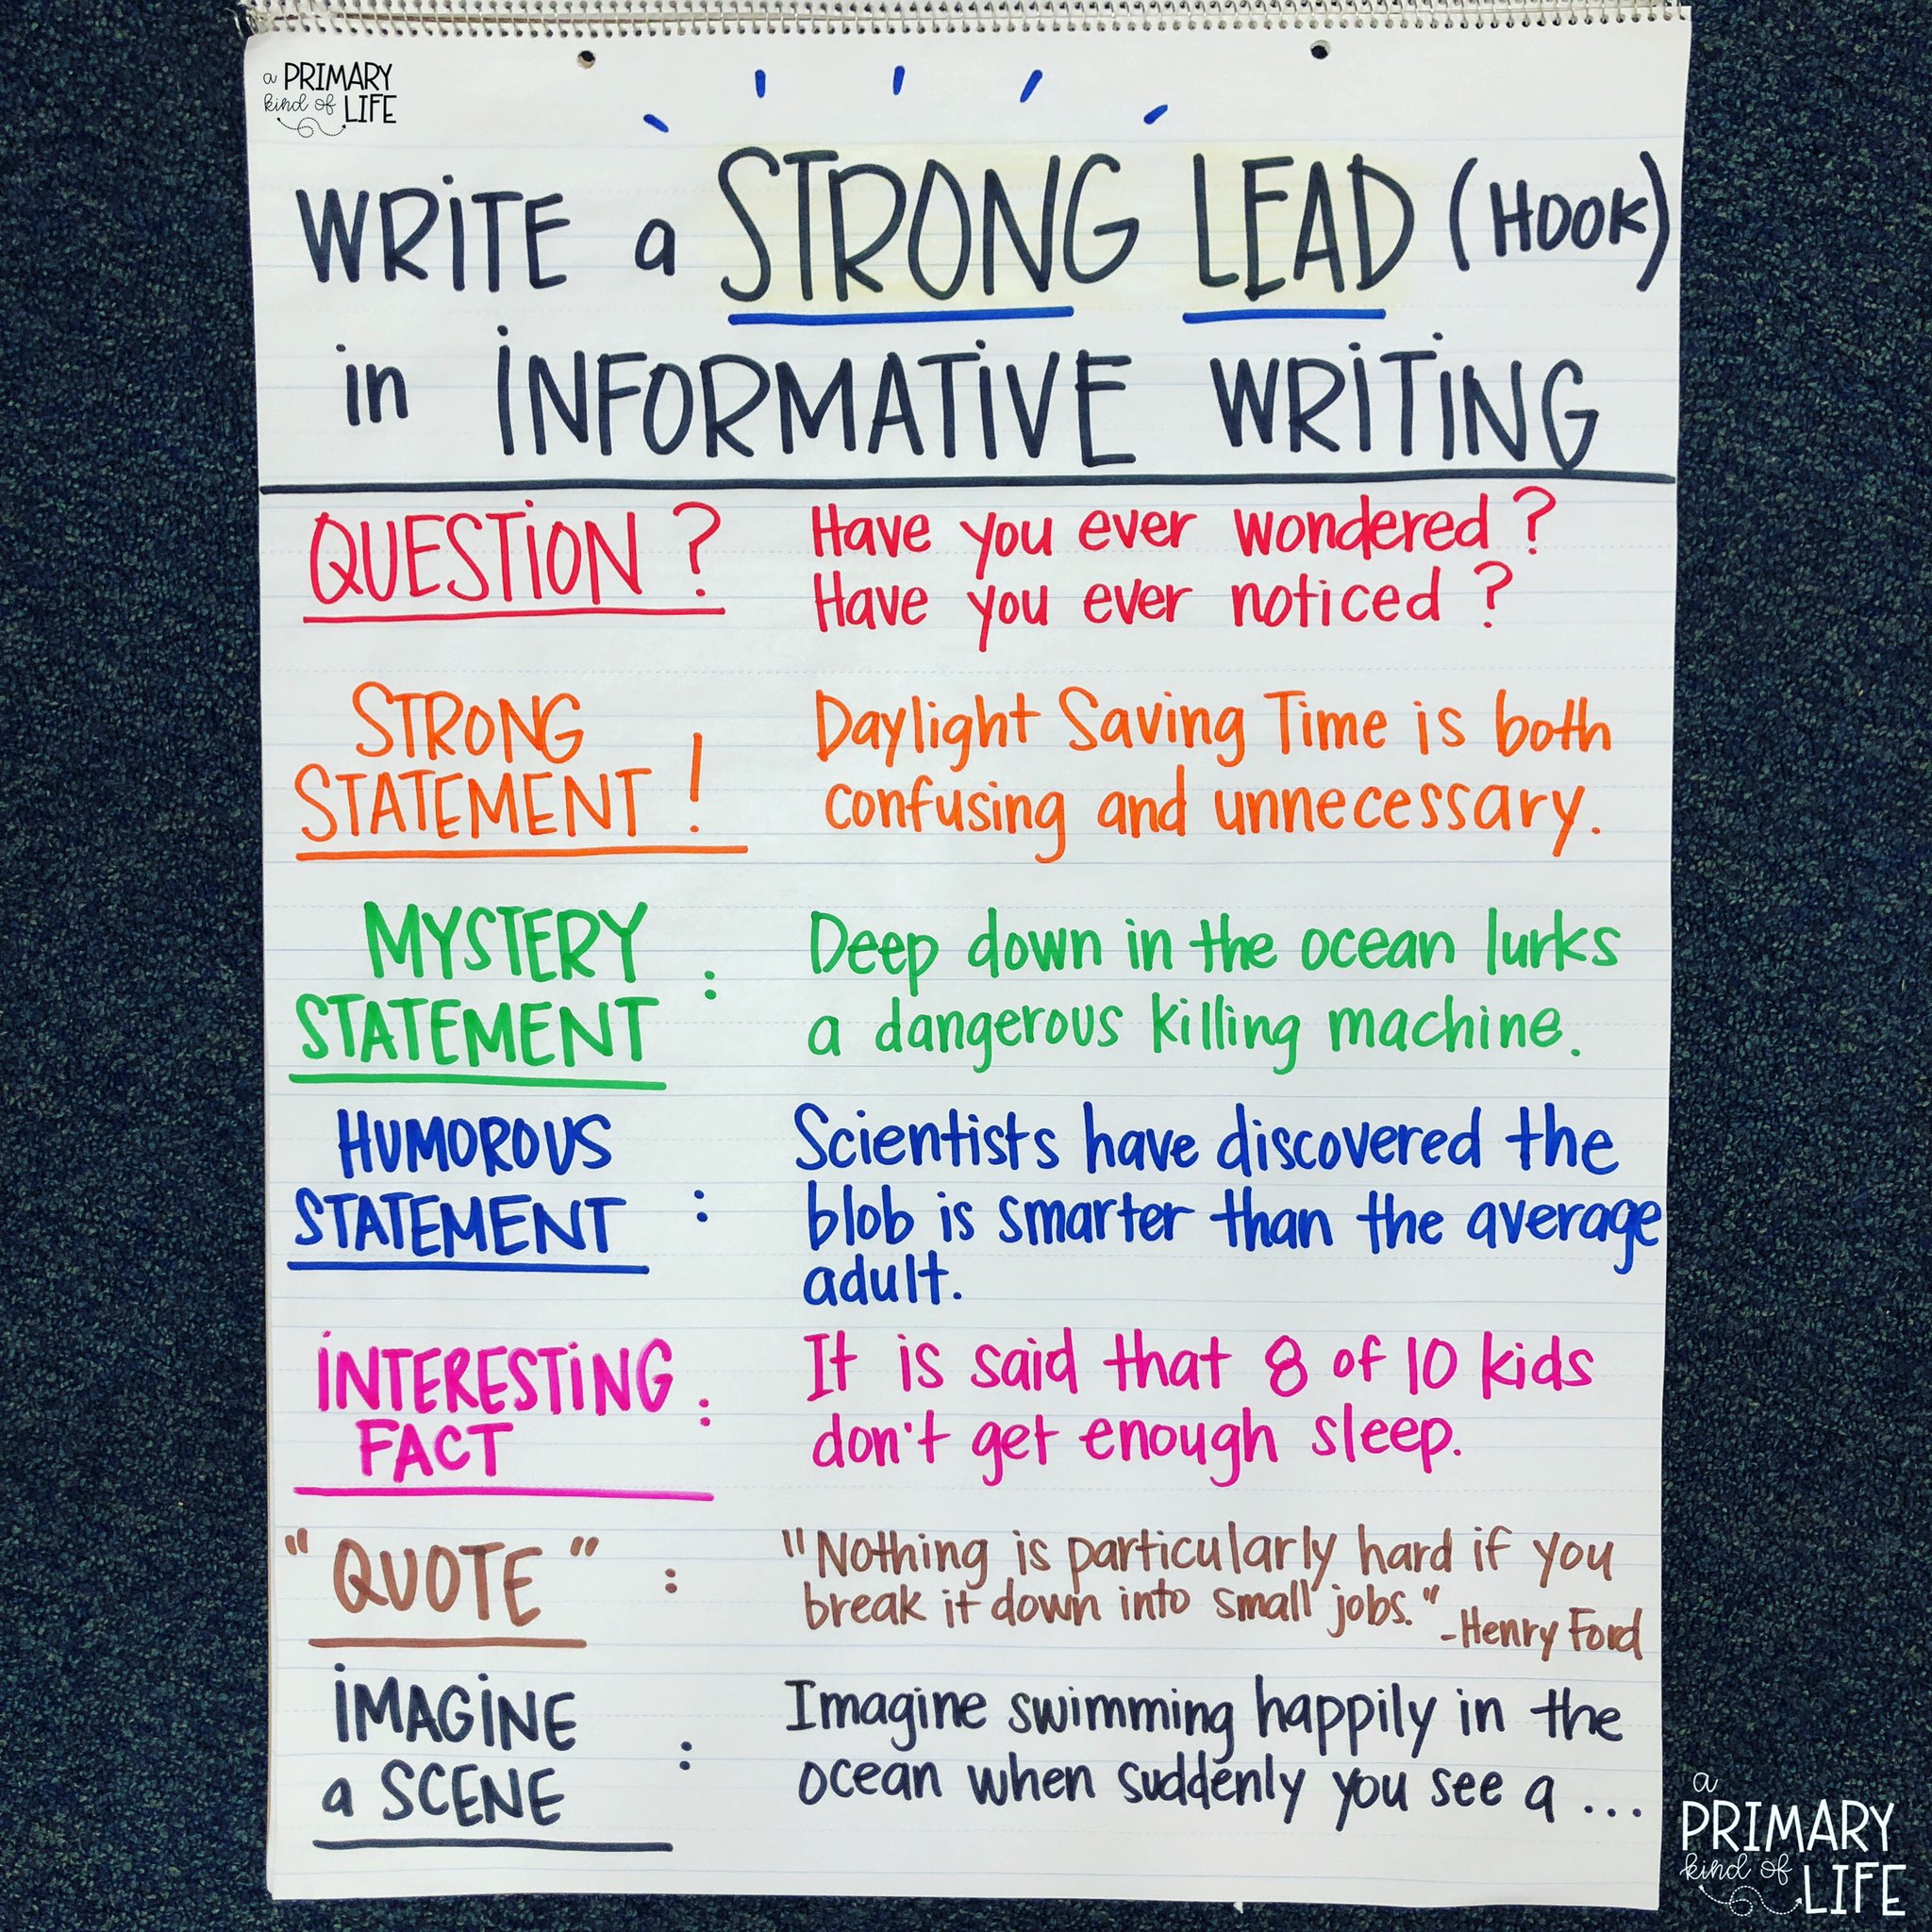 a PRIMARY
kind of LIFE
WRiTE a STRONG LEAD (HOOK)
in iNFORMATiVE WRiTiNG
QUESTiON ? Have you ever wondered ?
Have you ever noticed ?
STRONG Daylight Saving Time is both
STATEMENT ! confusing and unnecessary.
MYSTERY Deep down in the ocean lurks
STATEMENT : a dangerous killing machine.
HUMOROUS Scientists have discovered the
STATEMENT : blob is smarter than the average
adult.
iNTERESTiNG : It is said that 8 of 10 kids
FACT don't get enough sleep.
"QUOTE" : "Nothing is particularly hard if you
break it down into small jobs."
-Henry Ford
iMAGiNE : Imagine swimming happily in the
a SCENE ocean when suddenly you see a ...
a
PRIMARY
kind of
LIFE